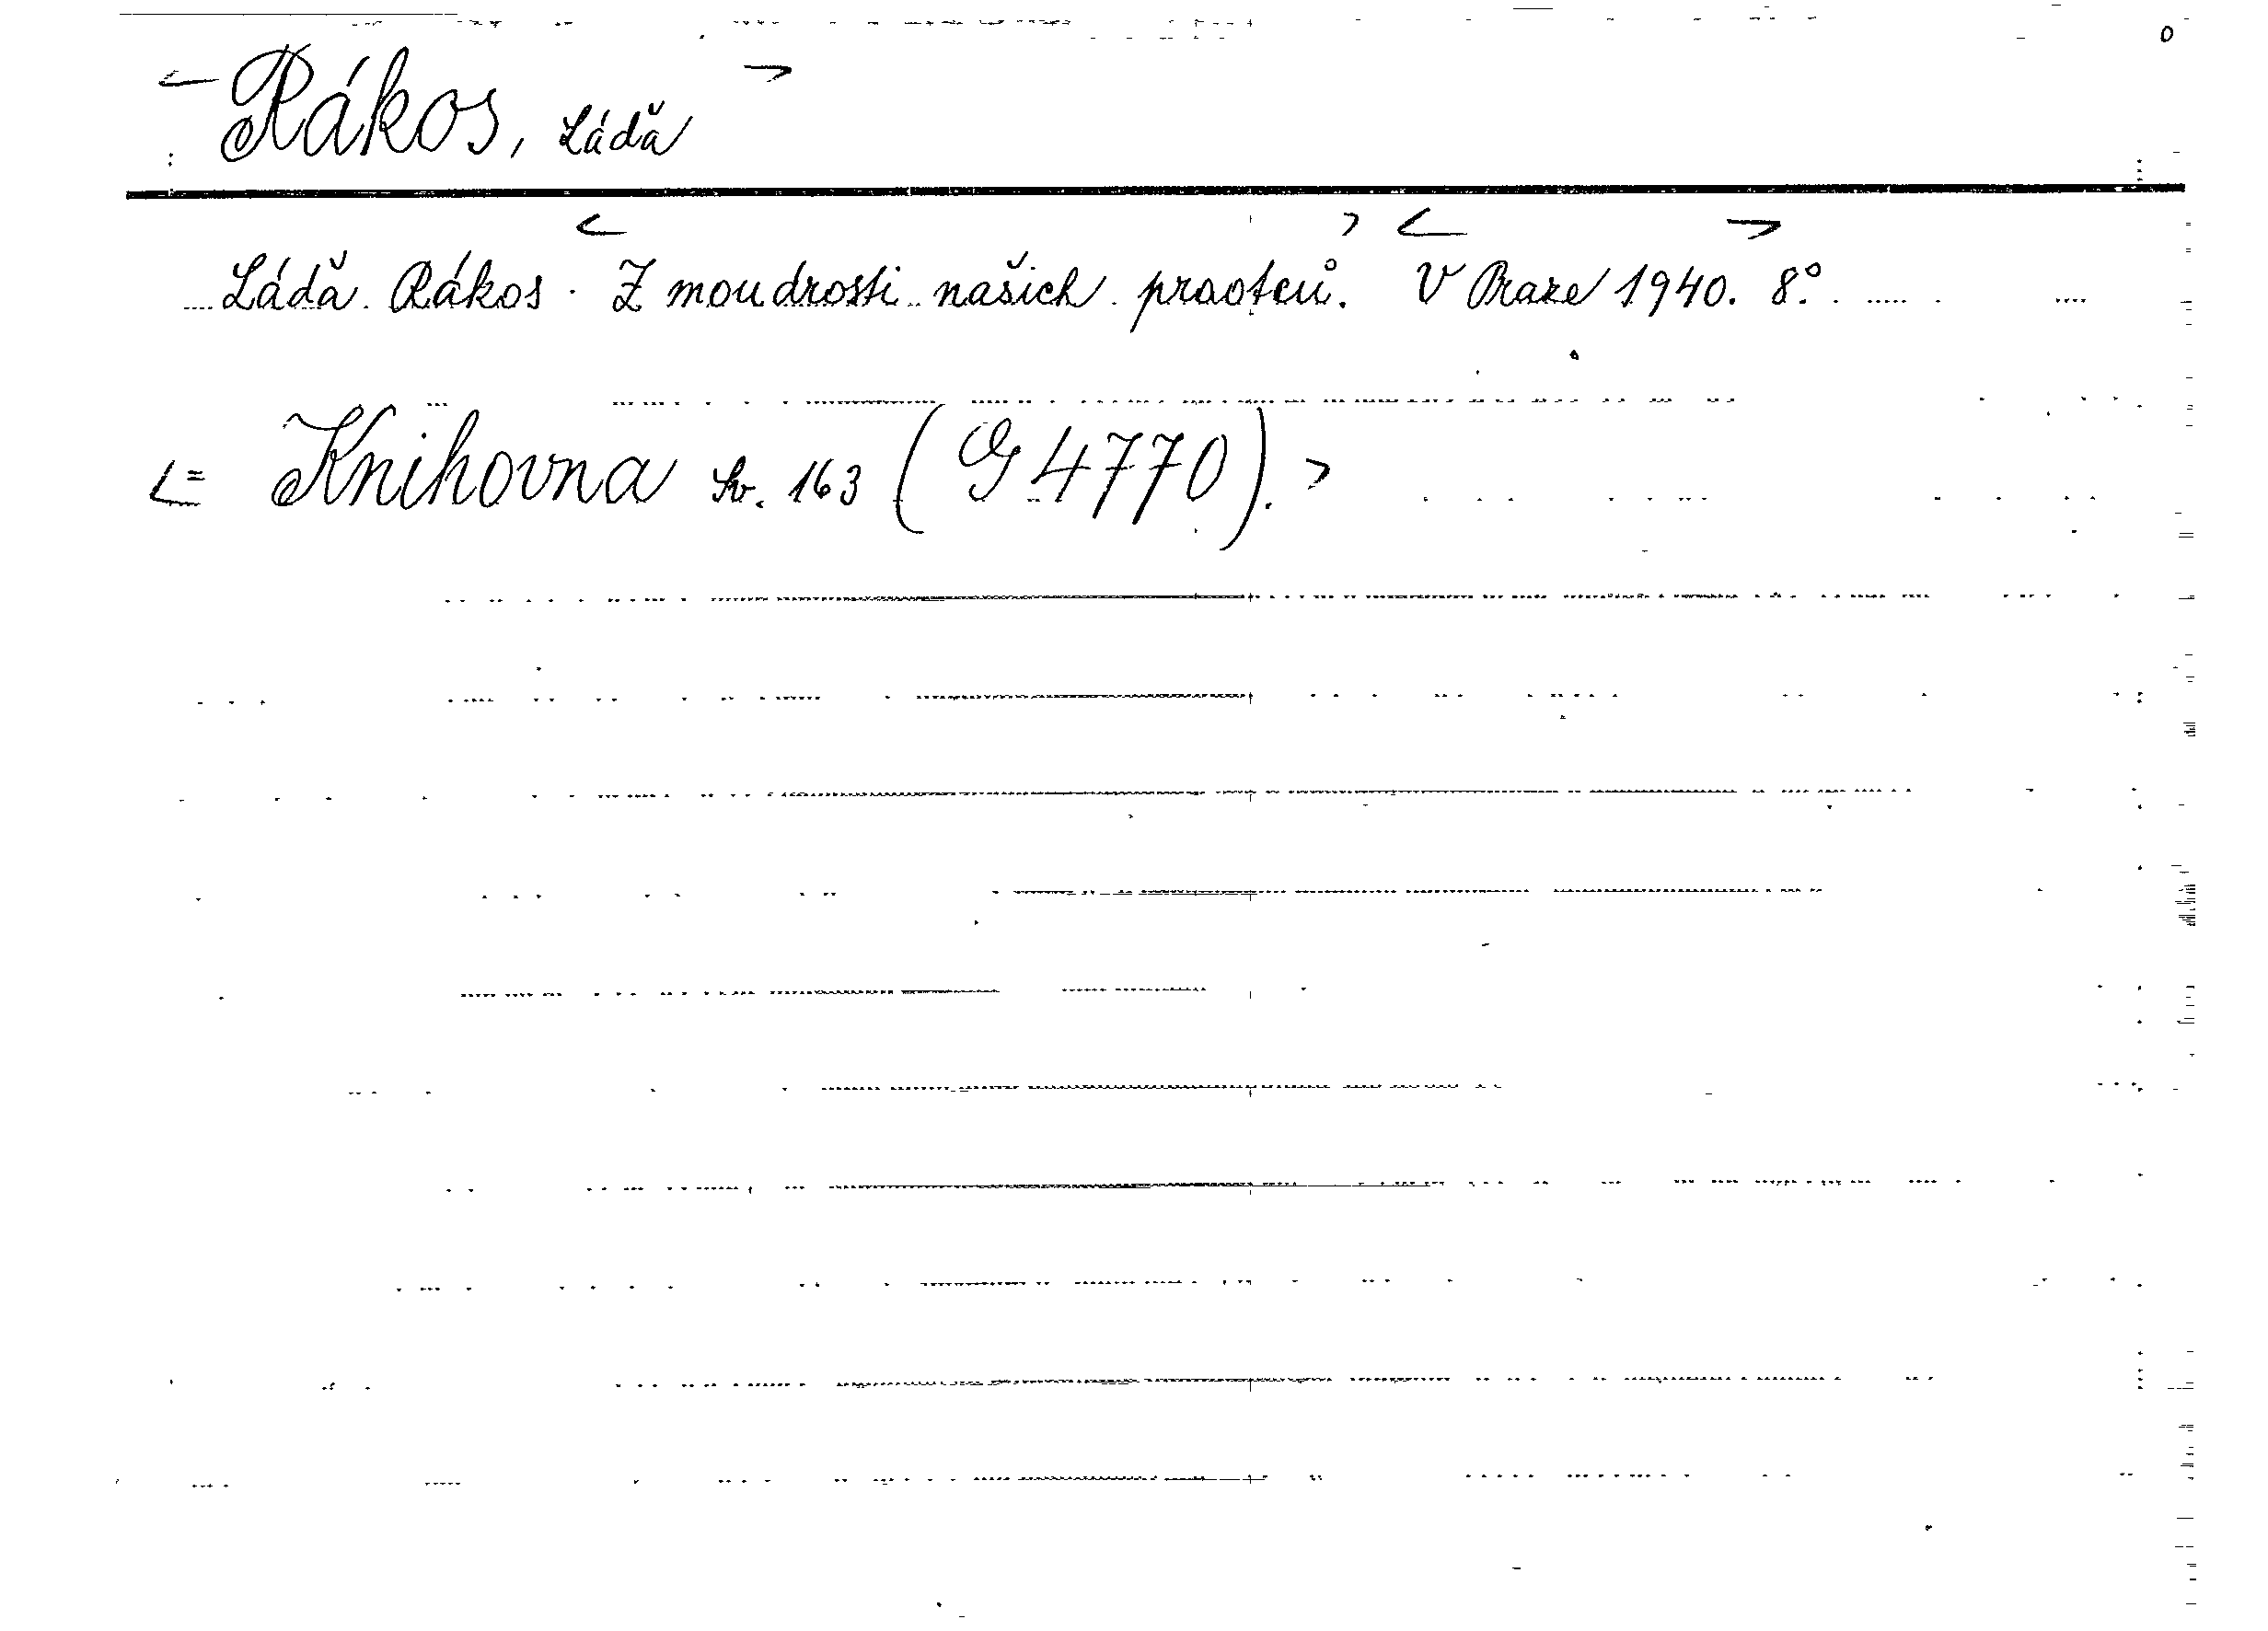 < Rákos, Láďa >
Láďa Rákos. < Z moudrosti našich praotců. > < V Praze > 1940. 8°.
<= Knihovna sv. 163 (G 4770). >